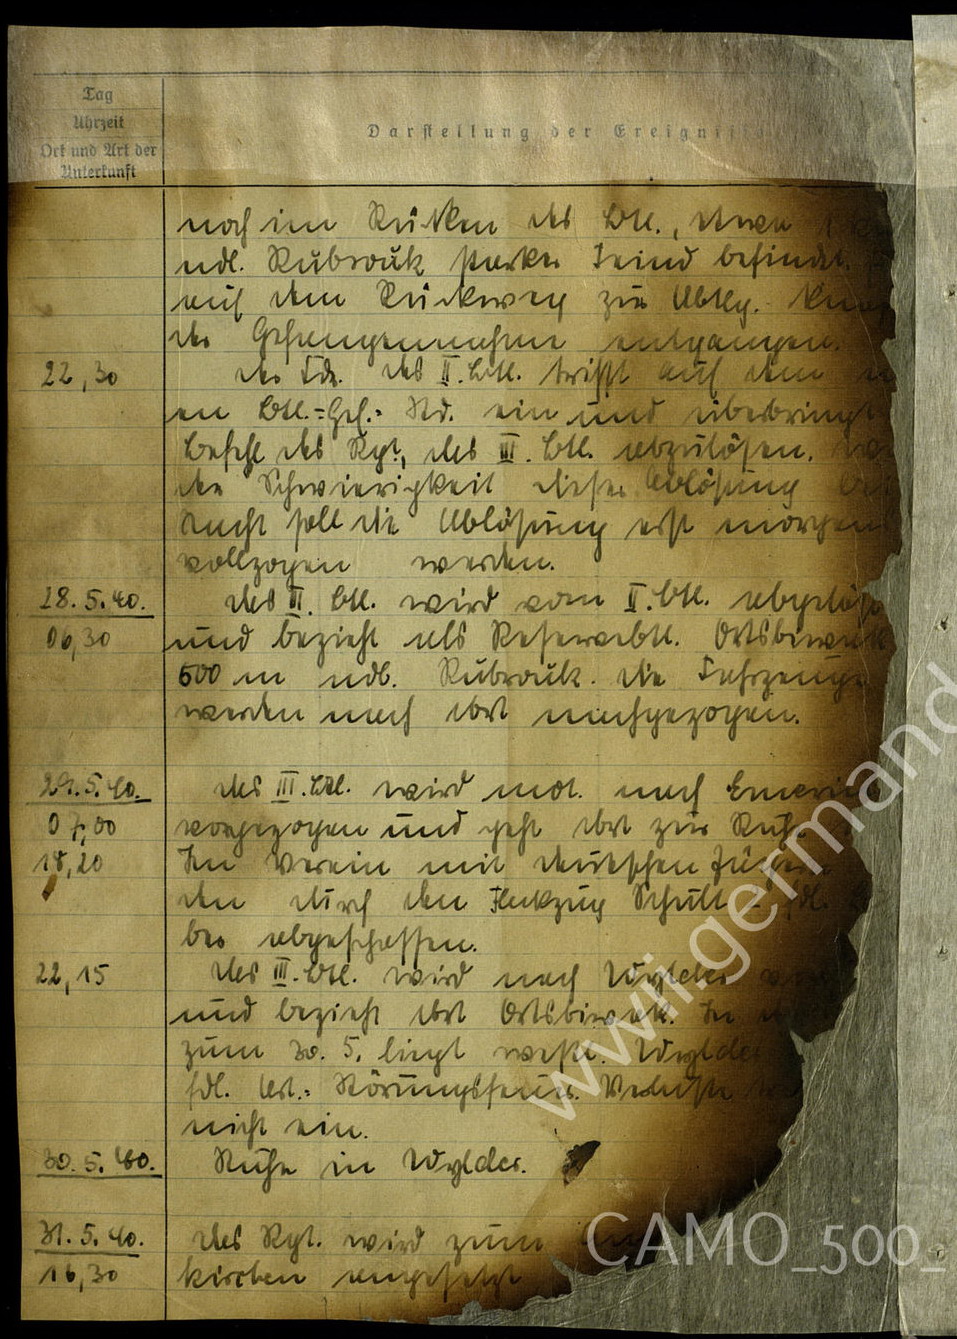 Tag
Uhrzeit
Ort und Art der
Unterkunft
Darstellung der Ereignisse
noch im Rücken des Btl., etwa
ndl. Rubrouk starker Feind befindet.
auf dem Rückweg zur Abtlg.
der Gefangennahme entgangen.
22,30
der Kdr. des II. Btl. trifft auf dem
en Btl.-Gef.-Std. ein und überbringt
Befehl des Rgt., das III. Btl. abzulösen.
der Schwierigkeit dieser Ablösung bei
Nacht soll die Ablösung erst morgen
vollzogen werden.
28.5.40.
das III. Btl. wird vom II. Btl. abgelöst
06,30
und bezieht als Reservebtl. Ortsbiwak
500 m ndl. Rubrouk. die Fahrzeuge
werden nach dort nachgezogen.
29.5.40.
das III. Btl. wird mot. nach
07,00
vorgezogen und geht dort zur Ruhe
18,20
Im Verein mit deutschen Jägern
den durch den Flakzug Schult
ber abgeschossen.
22,15
das III. Btl. wird nach Wylder
und bezieht dort Ortsbiwak. In
zum 30. 5. liegt westl. Wylder
fdl. Art.-Störungsfeuer. Verluste
nicht ein.
30.5.40.
Ruhe in Wylder.
31.5.40.
das Rgt. wird zum
16,30
kirchen eingesetzt
www.germand
CAMO_500_